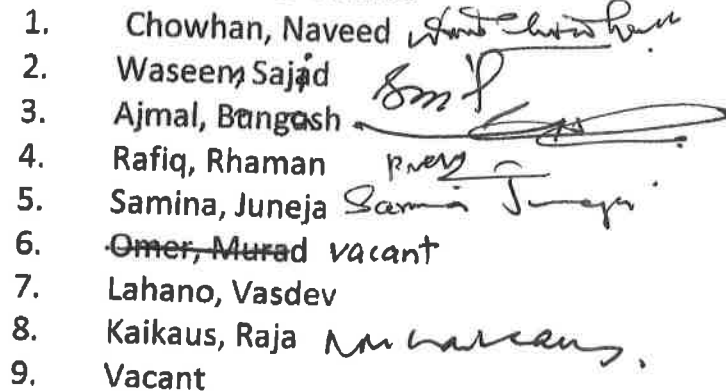 1. Chowhan, Naveed
2. Waseem, Sajjad
3. Ajmal, Bangash
4. Rafiq, Rhaman
5. Samina, Juneja Samina Juneja
6. Omer, Murad vacant
7. Lahano, Vasdev
8. Kaikaus, Raja
9. Vacant